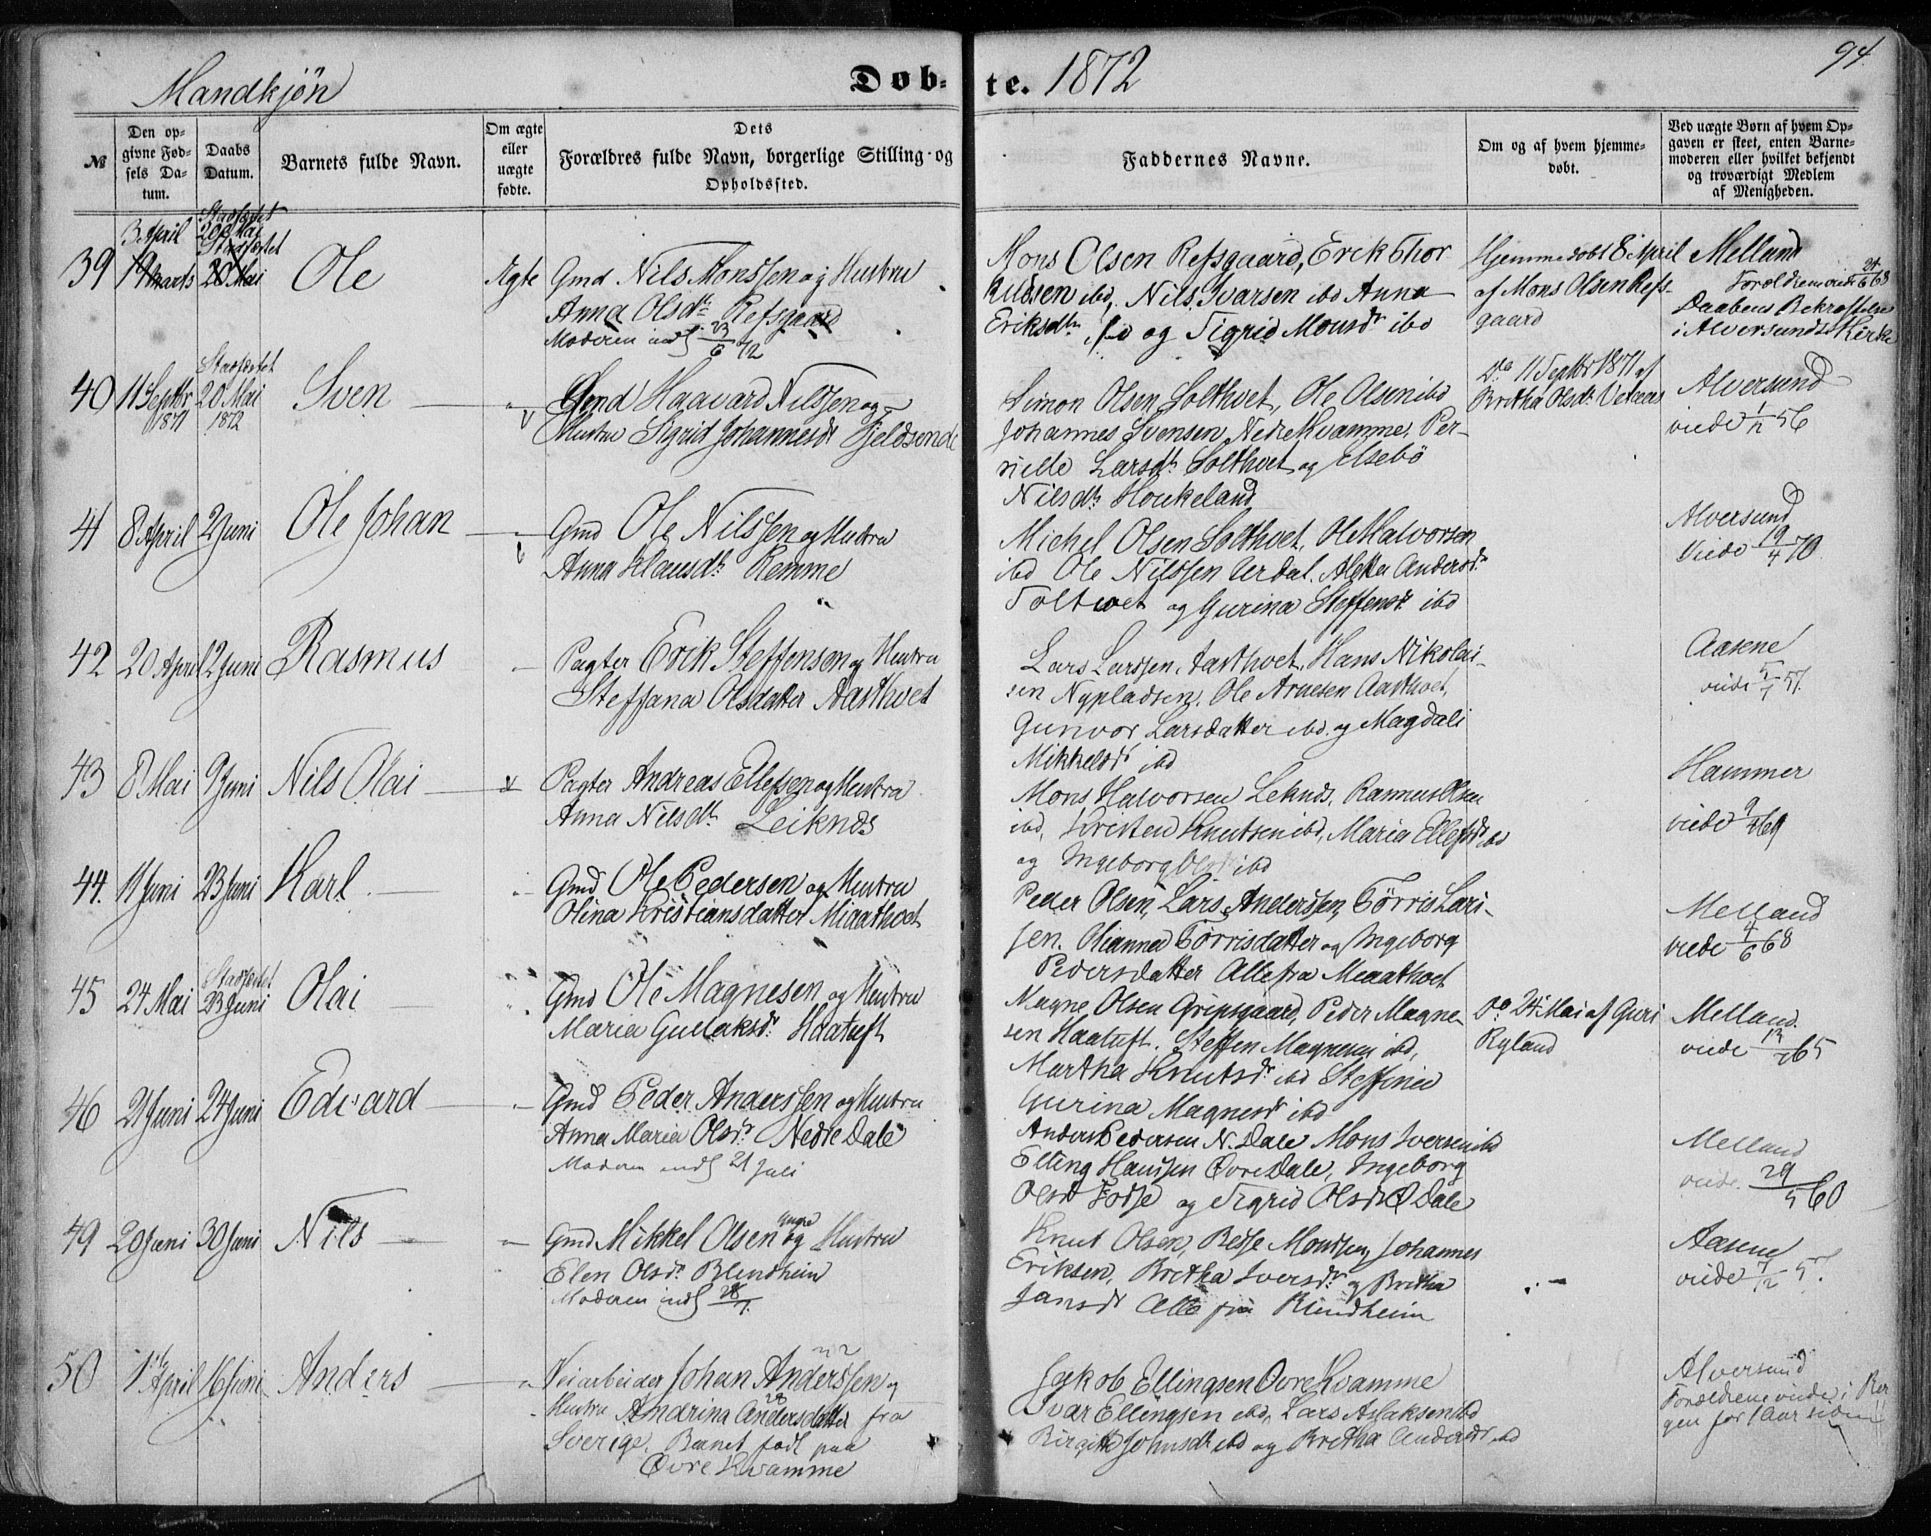 Mandkjøn
Døb-te. 1872
94.
№
Den opgivne Fødsels Datum.
Daabs Datum.
Barnets fulde Navn.
Om ægte eller uægte fødte.
Dets Forældres fulde Navn, borgerlige Stilling og Opholdssted.
Faddernes Navne.
Om og af hvem hjemmedøbt.
Ved uægte Børn af hvem Opgaven er skeet, enten Barnemoderen eller hvilket bekjendt og troværdigt Medlem af Menigheden.
39
3 April
19 Marts
Stadfæstet
20 Mai
Stadfæstet
20 Mai
Ole
Ægte
Gmd Nils Monssen og Hustru
Anna Olsdtr Refsgaard
Moderen indl 23/6 72
Mons Olsen Refsgaard, Erik Thor
kildsen ibd, Nils Ivarsen ibd Anna
Eriksdtr ibd og Sigrid Monsdtr ibd
Hjemmedøbt 8 April
af Mons Olsen Refs-
gaard
Melland
Forældrene viede 24/6 68
Daabens Bekræftelse
i Alversunds Kirke
40
11 Septbr
1871
Stadfæstet
20 Mai
1872
Sven
Gmd Haavard Nilssen og
Hustru Sigrid Johannesdr Fjeldsende
Simon Olsen Solthvet, Ole Olsen ibd
Johannes Svensen Nedre Kvamme, Per-
nille Larsdtr Solthvet og Elsebø
Nilsdtr Houkeland
Do 11 Septbr 1871 af
Britha Olsdtr Vetaas
Alversund
viede 1/11 56
41
8 April
2 Juni
Ole Johan
Gmd Ole Nilssen og Hustru
Anna Klausdtr Remme
Michel Olsen Solthvet, Ole Halvorsen
ibd Ole Nilssen Urdal, Aletta Andersdr
Soltvet og Gurina Steffensdr ibd
Alversund
Viede 19/4 70
42
20 April
2 Juni
Rasmus
Pagter Erik Steffensen og Hustru
Steffana Olsdatter Aasthvet
Lars Larssen Aasthvet, Hans Nikolai-
sen Nypladsen, Ole Arnesen Aasthvet,
Gunvor Larsdatter ibd. og Magdali
Mikkelsdr ibd
Aasene
viede 5/1 57.
43
8 Mai
9 Juni
Nils Olai
Pagter Andreas Ellefsen og Hustru
Anna Nilsdtr Leiknes
Mons Halvorsen Leknes, Rasmus Olsen
ibd, Kristen Knutsen ibd, Maria Ellefsdr ibd
og Ingeborg Olsdr ibd
Hammer
44.
11 Juni
23 Juni
Karl
Gmd Ole Pedersen og Hustru
Olina Kristiansdatter Miaathvet
Peder Olsen, Lars Anderssen, Tørris Lars-
sen. Olianna Tørrisdatter og Ingeborg
Pedersdatter Alle fra Miaathvet
Melland
viede 4/6 68
45
24 Mai
Stadfæstet
23 Juni
Olai
Gmd Ole Magnesen og Hustru
Maria Gullaksdr Haatuft
Magne Olsen Gripsgaard, Peder Magne-
sen Haatuft. Steffen Magnesen ibd,
Martha Knutsdr ibd Steffina
Gurina Magnesdr ibd
Do 24 Mai af Guri
Ryland
Melland
46
21 Juni
24 Juni
Edvard
Gmd Peder Anderssen og Hustru
Anna Maria Olsdr Nedre Dale
Moderen indl 21 Juli
Anders Pedersen N. Dale Mons Iversen ibd
Elling Hanssen Øvre Dale, Ingeborg
Olsdr Fosse og Sigrid Olsdr Ø Dale
Melland
viede 29/5 60
49
20 Juni
30 Juni
Nils
Gmd Mikkel Olsen yngre og Hustru
Elen Olsdr Blindheim
Moderen indl 28/7.
Knut Olsen, Besse Monssen, Johannes
Eriksen, Britha Iversdr og Britha
Jansdr Alle fra Blindheim
Aasene
viede 7/2 57.
50
1ste April
16 Juni
Anders
Veiarbeider Johan Anderssen og
Hustru Andrina Andersdatter fra
Sverige. Barnet født paa
Øvre Kvamme
Jakob Ellingsen Øvre Kvamme
Ivar Ellingsen ibd, Lars Aslaksen ibd
Birgitte Johnsdr ibd og Britha Andersdr ibd
Alversund
Forældrene viede i Ber
gen for 1 Aar siden